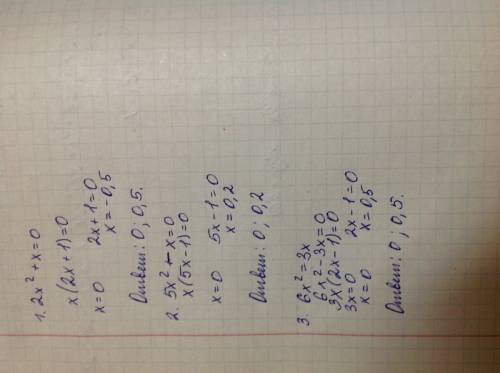 1. 2x² + x = 0
x(2x+1)=0
x=0 2x+1=0
x=-0,5
Ответ: 0; 0,5.
2. 5x² - x = 0
x(5x-1)=0
x=0 5x-1=0
x=0,2
Ответ: 0; 0,2
3. 6x² = 3x
6x² - 3x = 0
3x(2x-1)=0
3x=0 2x-1=0
x=0 x=0,5
Ответ: 0; 0,5.